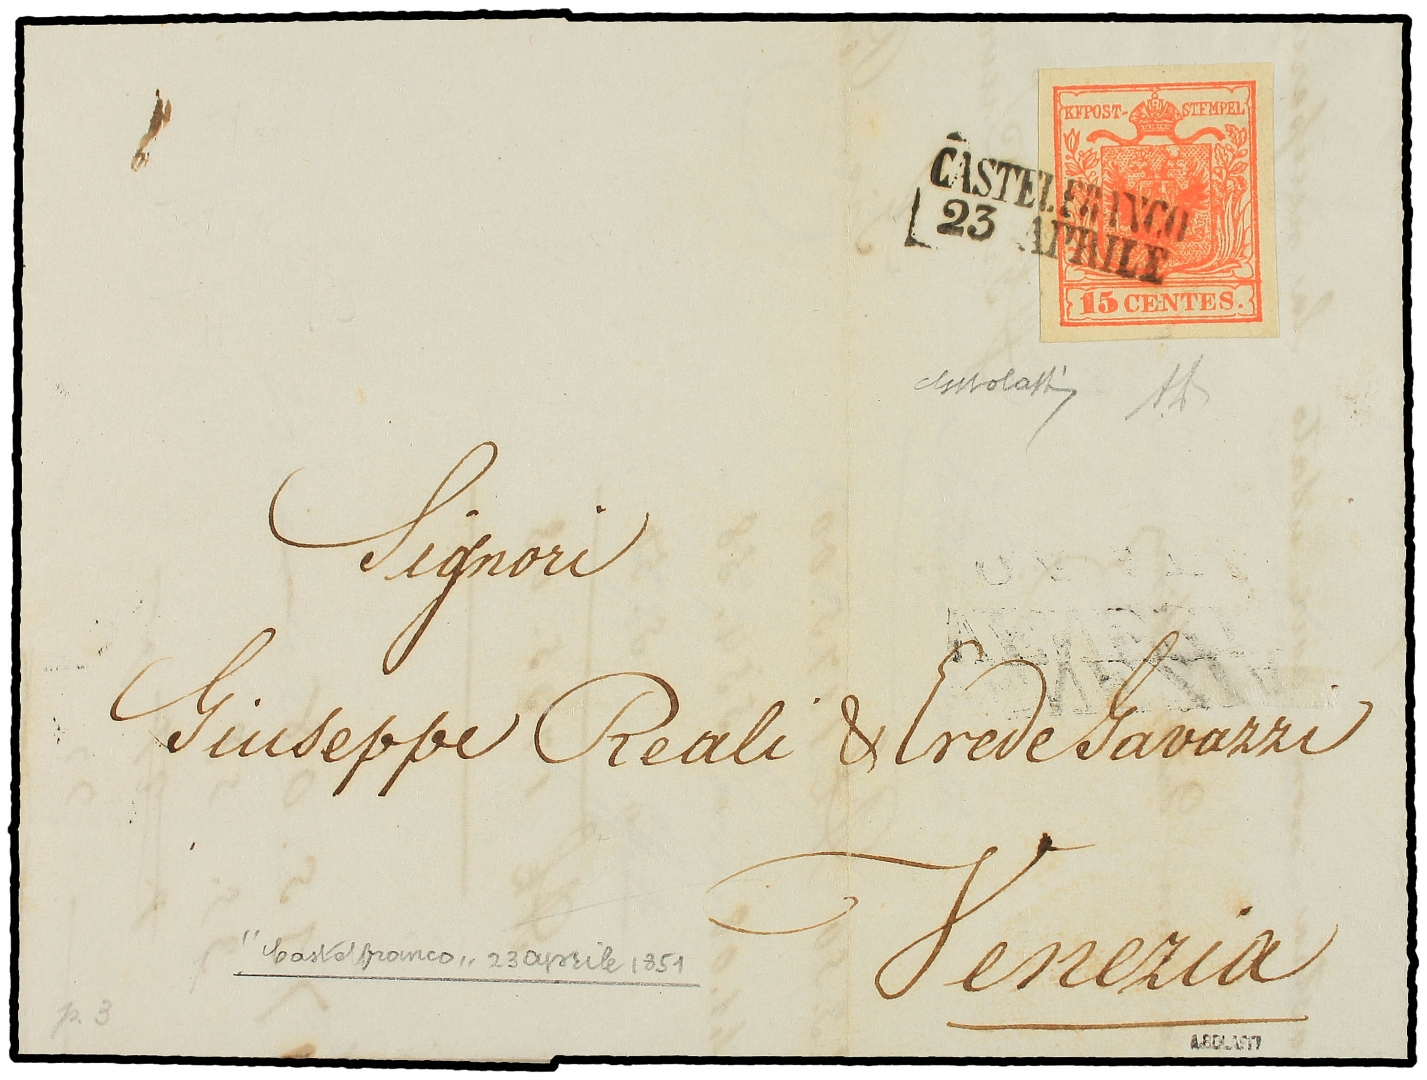 KKPOST-STEMPEL
CASTELFRANCO
23 APRILE
15 CENTES.
Signori
Giuseppe Reali & Erede Gavazzi
Venezia
"Castelfranco" 23 aprile 1851
p. 3
A.BOLAFFI